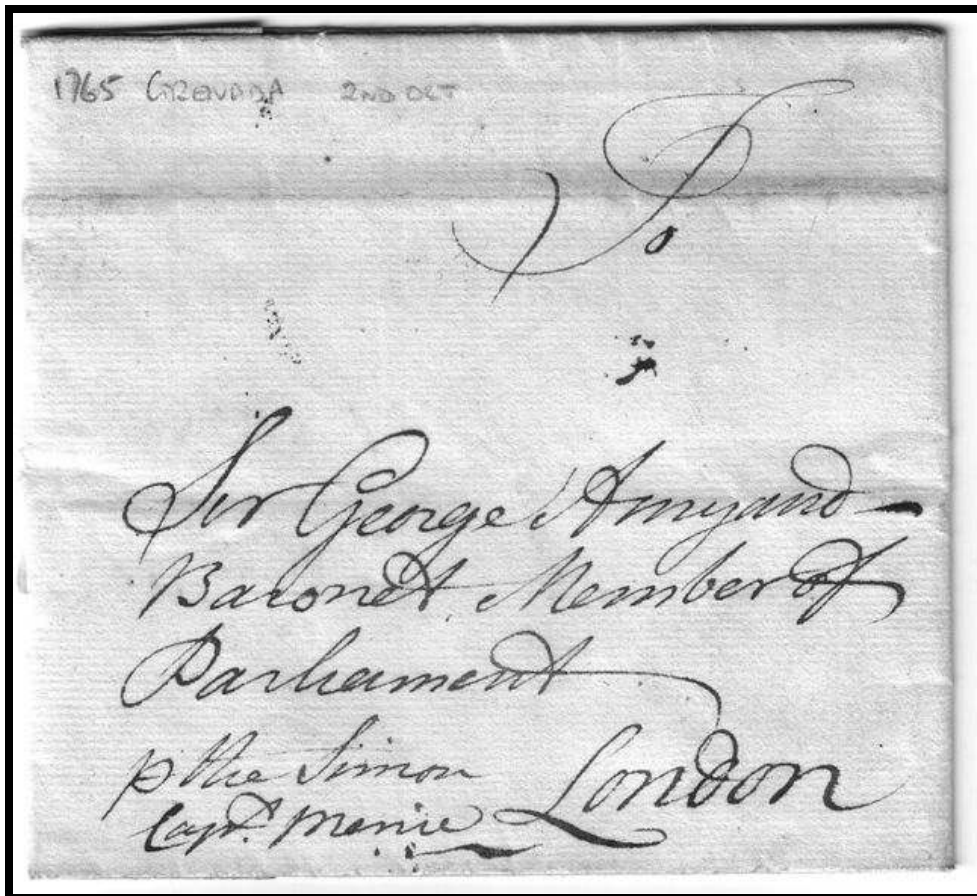 1765 GRENADA 2ND OCT
To
Sir George Amyand
Baronet Member of
Parliament
p the Simon
London
Capt.